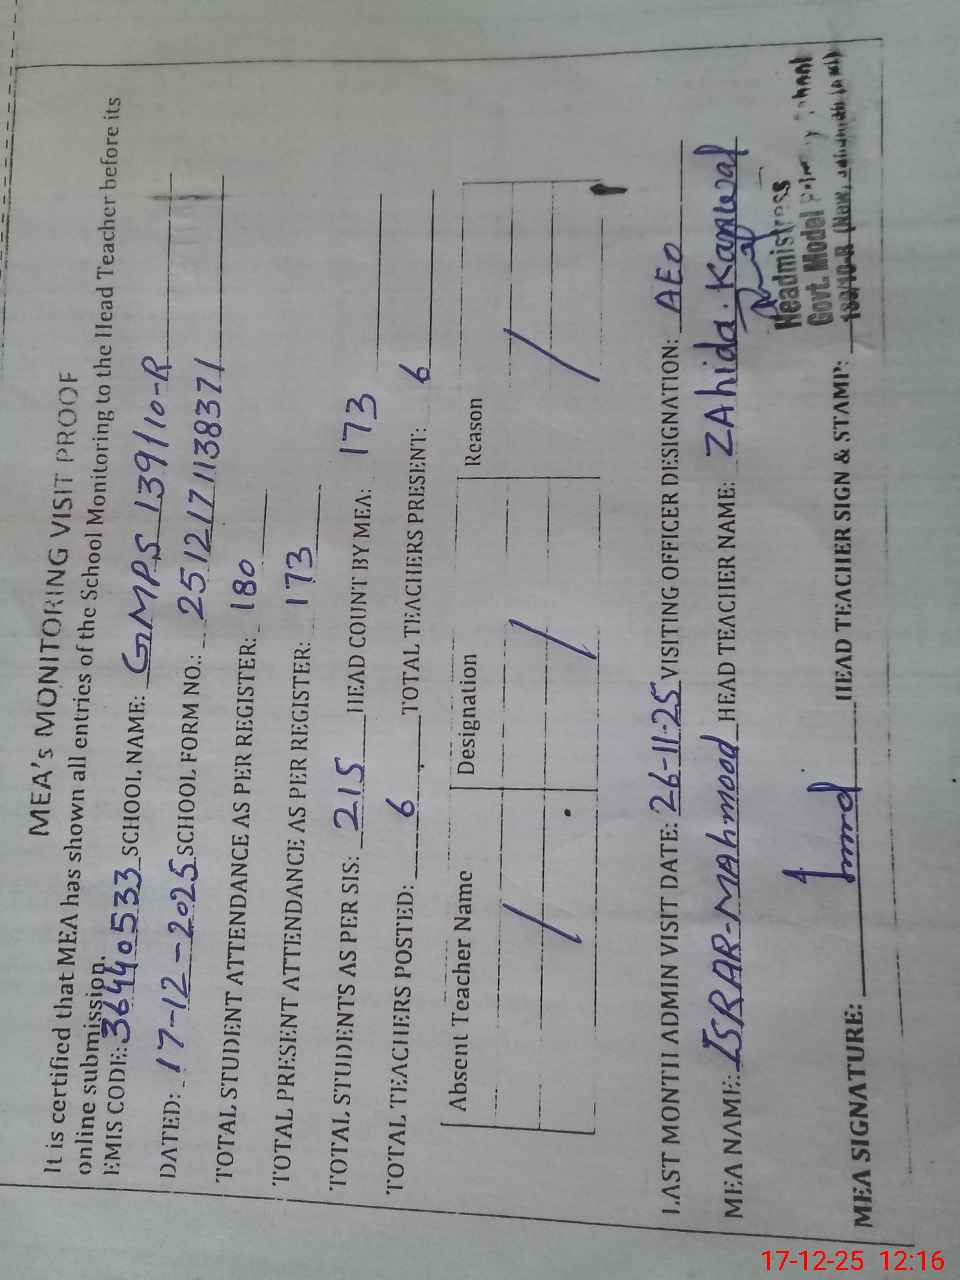 MEA's MONITORING VISIT PROOF
It is certified that MEA has shown all entries of the School Monitoring to the Head Teacher before its
online submission.
EMIS CODE: 36440533 SCHOOL NAME: GMPS 139/10-R
DATED: 17-12-2025 SCHOOL FORM NO.: 2512171138371
TOTAL STUDENT ATTENDANCE AS PER REGISTER: 180
TOTAL PRESENT ATTENDANCE AS PER REGISTER: 173
TOTAL STUDENTS AS PER SIS: 215 HEAD COUNT BY MEA: 173
TOTAL TEACHERS POSTED: 6 TOTAL TEACHERS PRESENT: 6
Absent Teacher Name Designation Reason
/ / /
LAST MONTH ADMIN VISIT DATE: 26-11-25 VISITING OFFICER DESIGNATION: AEO
MEA NAME: ISRAR-MAhmood HEAD TEACHER NAME: ZAhida.Kanwal
Headmistress
Govt. Model
MEA SIGNATURE: HEAD TEACHER SIGN & STAMP:
17-12-25 12:16